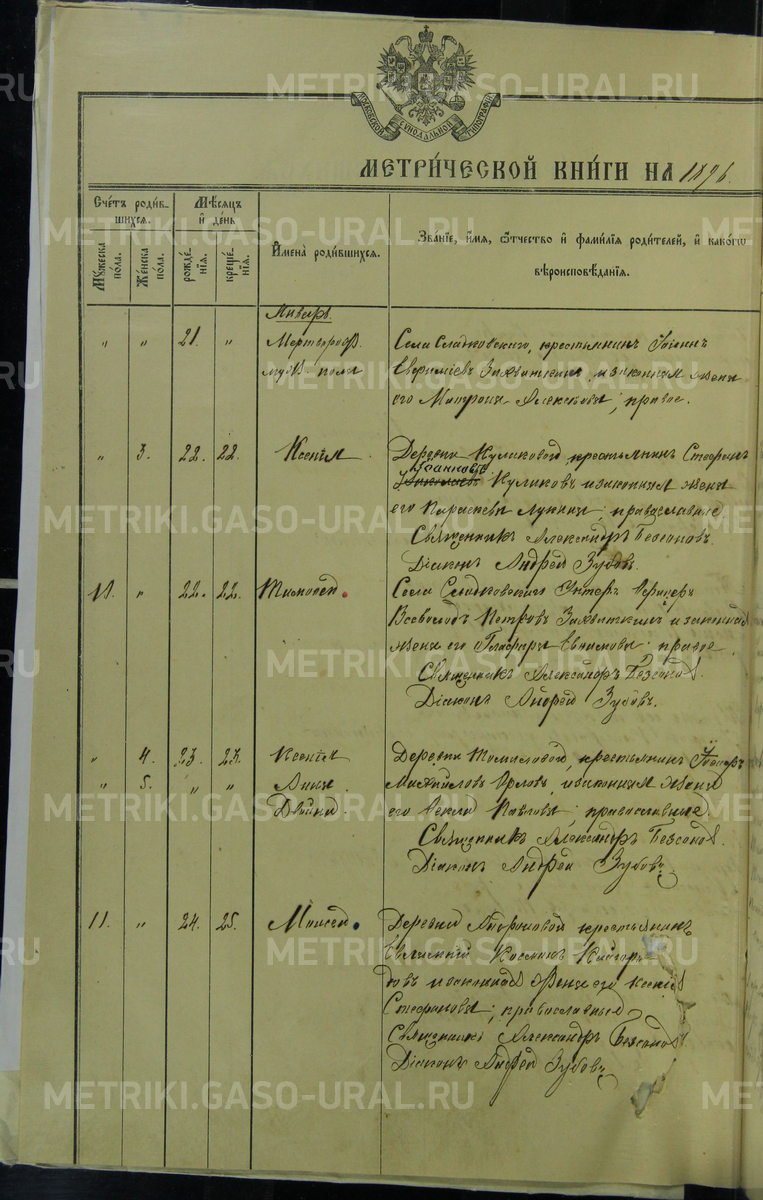 МОСКОВСКОЙ СѴНОДАЛЬНОЙ ТИПОГРАФІИ
МЕТРИ́ЧЕСКОЙ КНИ́ГИ НА 1896.
Сче́тъ роди́в-
шихся.
Му́жеска по́ла.
Же́нска по́ла.
Мѣ́сяцъ
и҆ де́нь
рожде́-
нія.
креще́-
нія.
И҆мена̀ роди́вшихся.
Зва́ніе, и҆́мя, ѻ҆́тчество и҆ фами́лія роди́телей, и҆ како́гѡ
вѣроисповѣ́данія.
Январь.
" " 21. " Мертворожд. Села Сладковскаго, крестьянинъ Іоаннъ
муж. пола Евфиміевъ и законная жена
его Матрона Алексѣева; правос.
" 3. 22. 22. Ксенія Деревни Куликовой крестьянинъ Стефанъ
Іоанновъ
Николаевъ Куликовъ и законная жена
его Параскева Лукина; православные
Священникъ Александръ Безсоновъ.
Діаконъ Андрей Зубовъ.
" 22. 22. Тимофей Села Сладковскаго Унтеръ Офицеръ
Всеволодъ Петровъ и законная
жена его Глафира; правос.
Священникъ Александръ Безсоновъ.
Діаконъ Андрей Зубовъ.
" 4. 23. 23. Ксенія Деревни Томиловой, крестьянинъ
" 5. " " Анна Михайловъ Орловъ, и законная жена
Двойни его Фекла Павлова; православные.
Священникъ Александръ Безсоновъ.
Діаконъ Андрей Зубовъ
11. " 24. 25. Моисей Деревни крестьянинъ
Косминъ Кайгоро-
довъ и законная жена его Ксенія
Стефанова; православные
Священникъ Александръ Безсоновъ
Діаконъ Андрей Зубовъ
METRIKI.GASO-URAL.RU